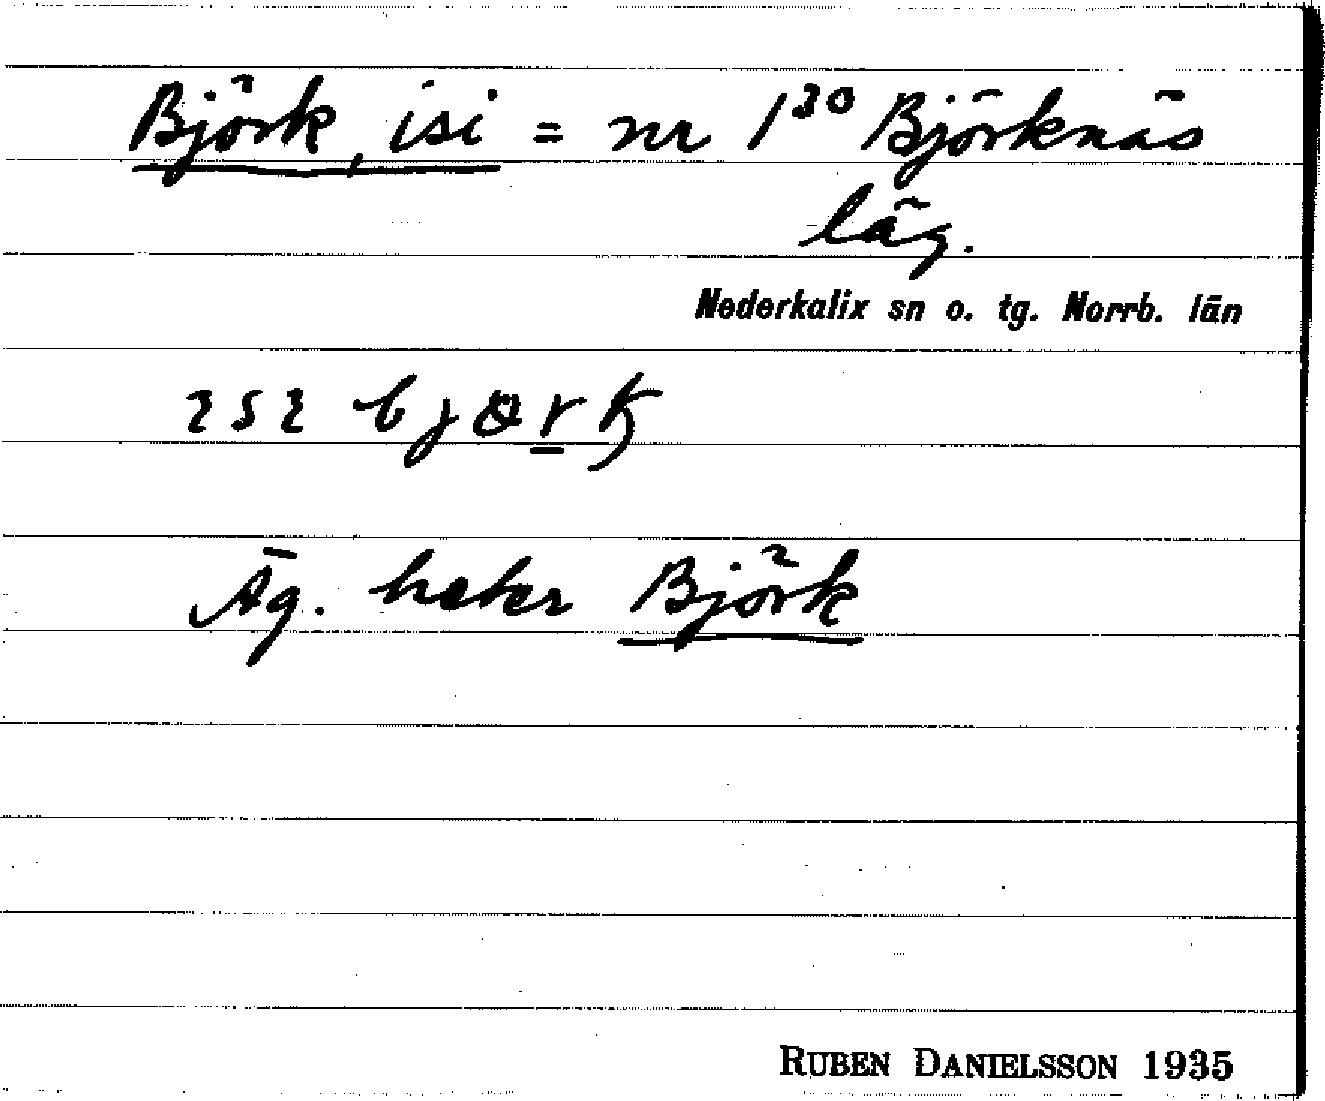 Björk, isi = nr 1³⁰ Björknäs
läg.
Nederkalix sn o. tg. Norrb. län
ɩsɩ bjɵrk
Äg. heter Björk
RUBEN DANIELSSON 1935